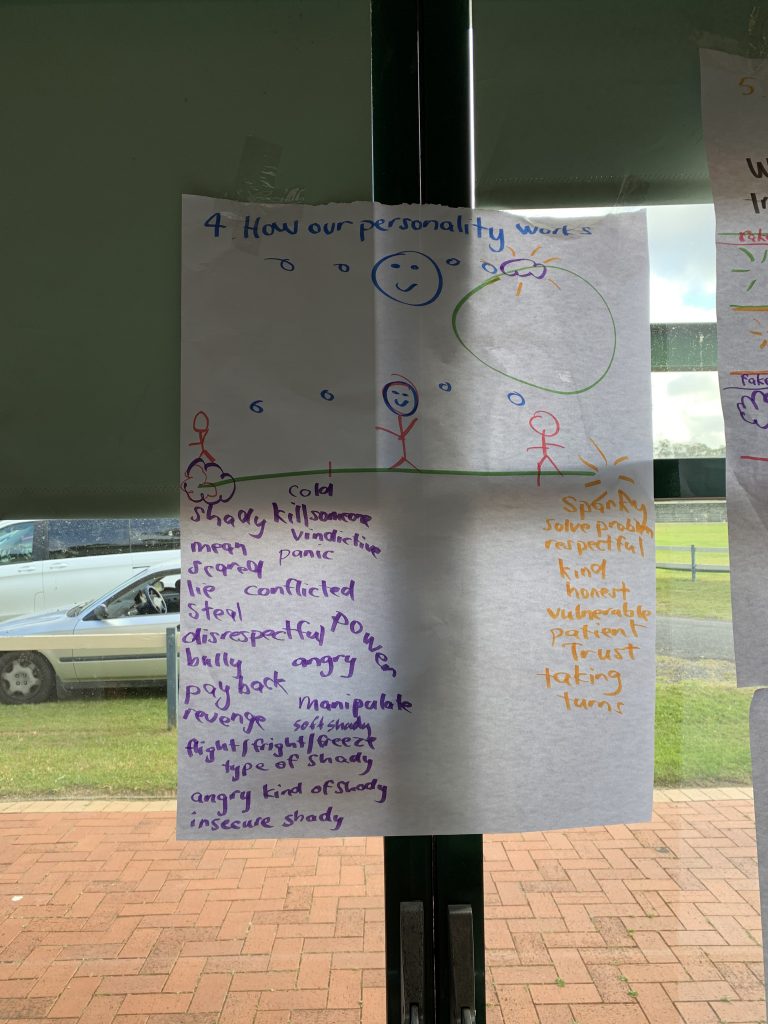 4 How our personality works
cold
shady kill someone
vindictive
mean panic
scared
lie conflicted
Steal
disrespectful Power
bully angry
pay back
Manipulate
revenge soft shady
flight/fright/freeze
type of shady
angry kind of shady
insecure shady
Sparky
solve problem
respectful
kind
honest
vulnerable
patient
Trust
taking
turns
5
Fake